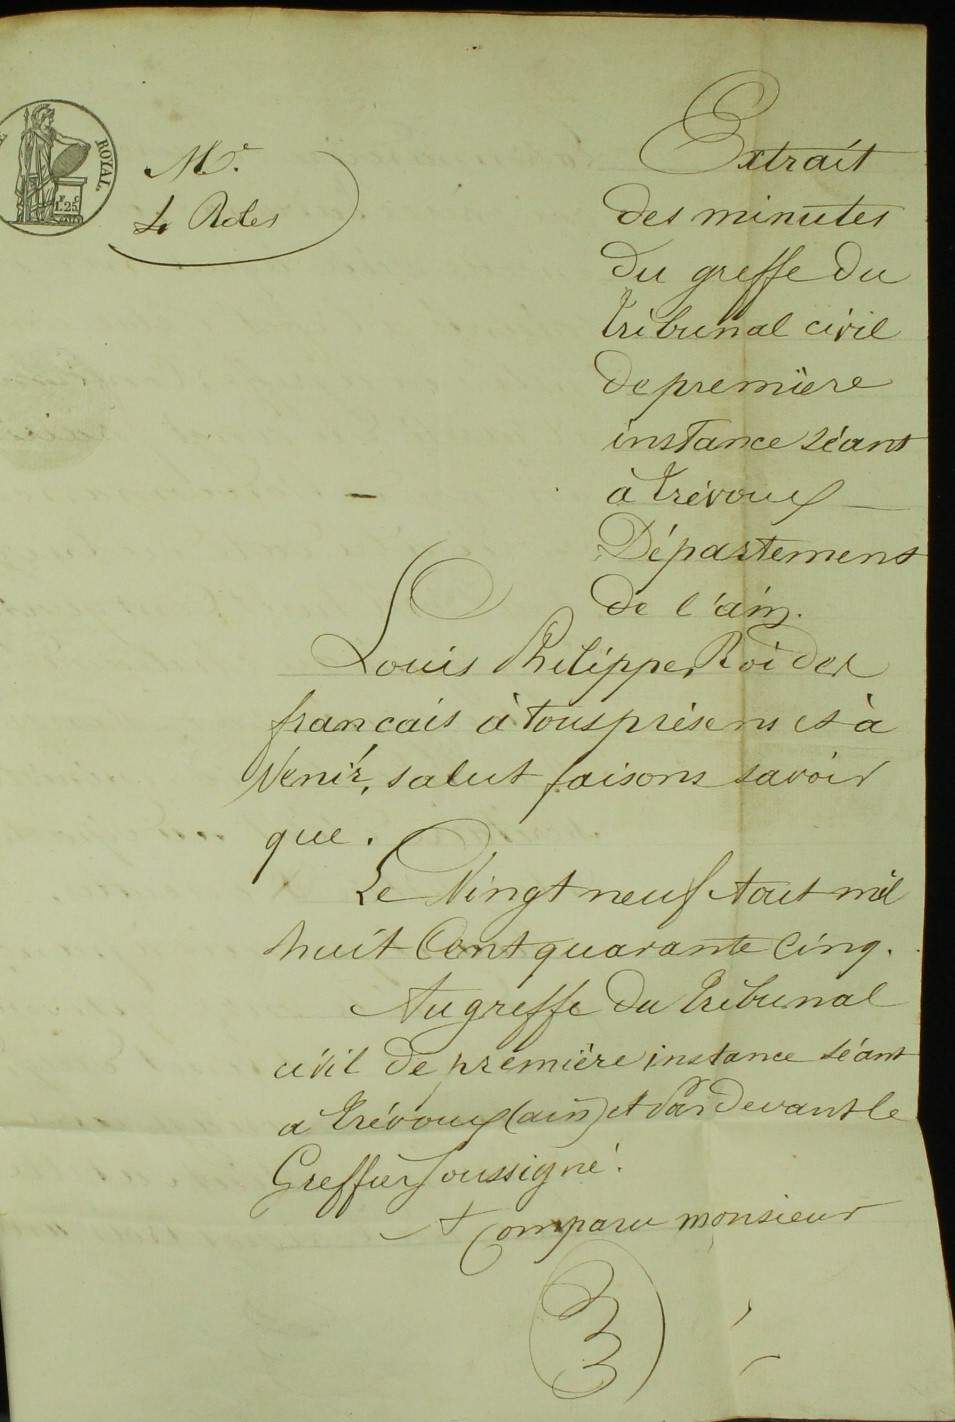 ROYAL.
1.25
Mr.
4 Roles
Extrait
des minutes
du greffe du
tribunal civil
de première
instance séant
à trévoux
Département
de l'ain.
Louis Philippe, Roi des
francais à tous présens et à
Venir, salut faisons savoir
que.
Le Vingt neuf Aout mil
huit Cent quarante Cinq.
Au greffe du tribunal
civil de première instance séant
à trévoux (ain) et Par devant le
Greffier Soussigné.
A Comparu monsieur